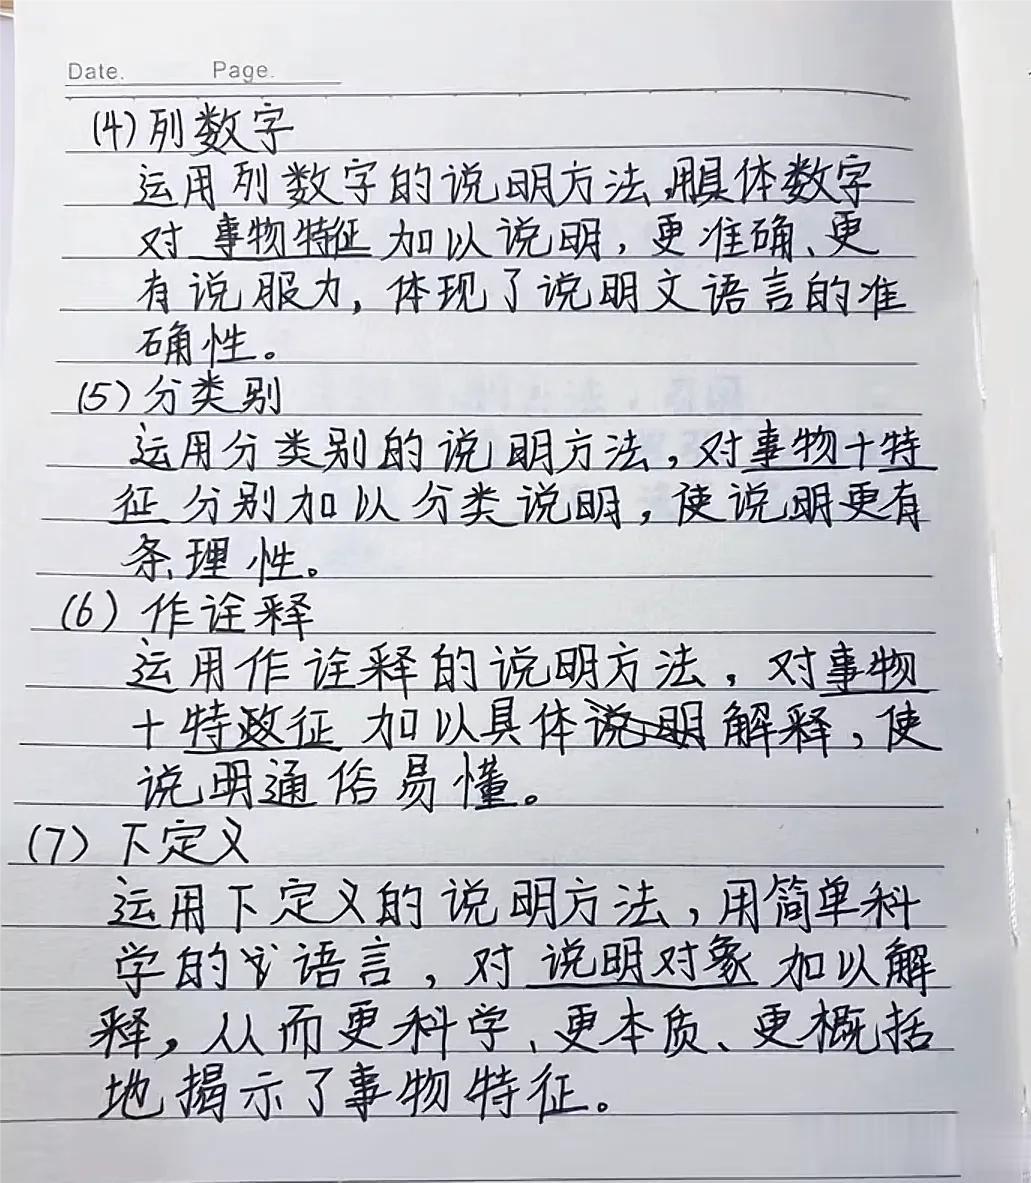 Date. Page.
(4) 列数字
运用列数字的说明方法,用具体数字
对 事物特征 加以说明，更准确、更
有说服力，体现了说明文语言的准
确性。
(5) 分类别
运用分类别的说明方法，对事物十特
征 分别加以分类说明，使说明更有
条理性。
(6) 作诠释
运用作诠释的说明方法，对事物
十特征 加以具体解释，使
说明通俗易懂。
(7) 下定义
运用下定义的说明方法，用简单科
学的语言，对 说明对象 加以解
释，从而更科学、更本质、更概括
地揭示了事物特征。